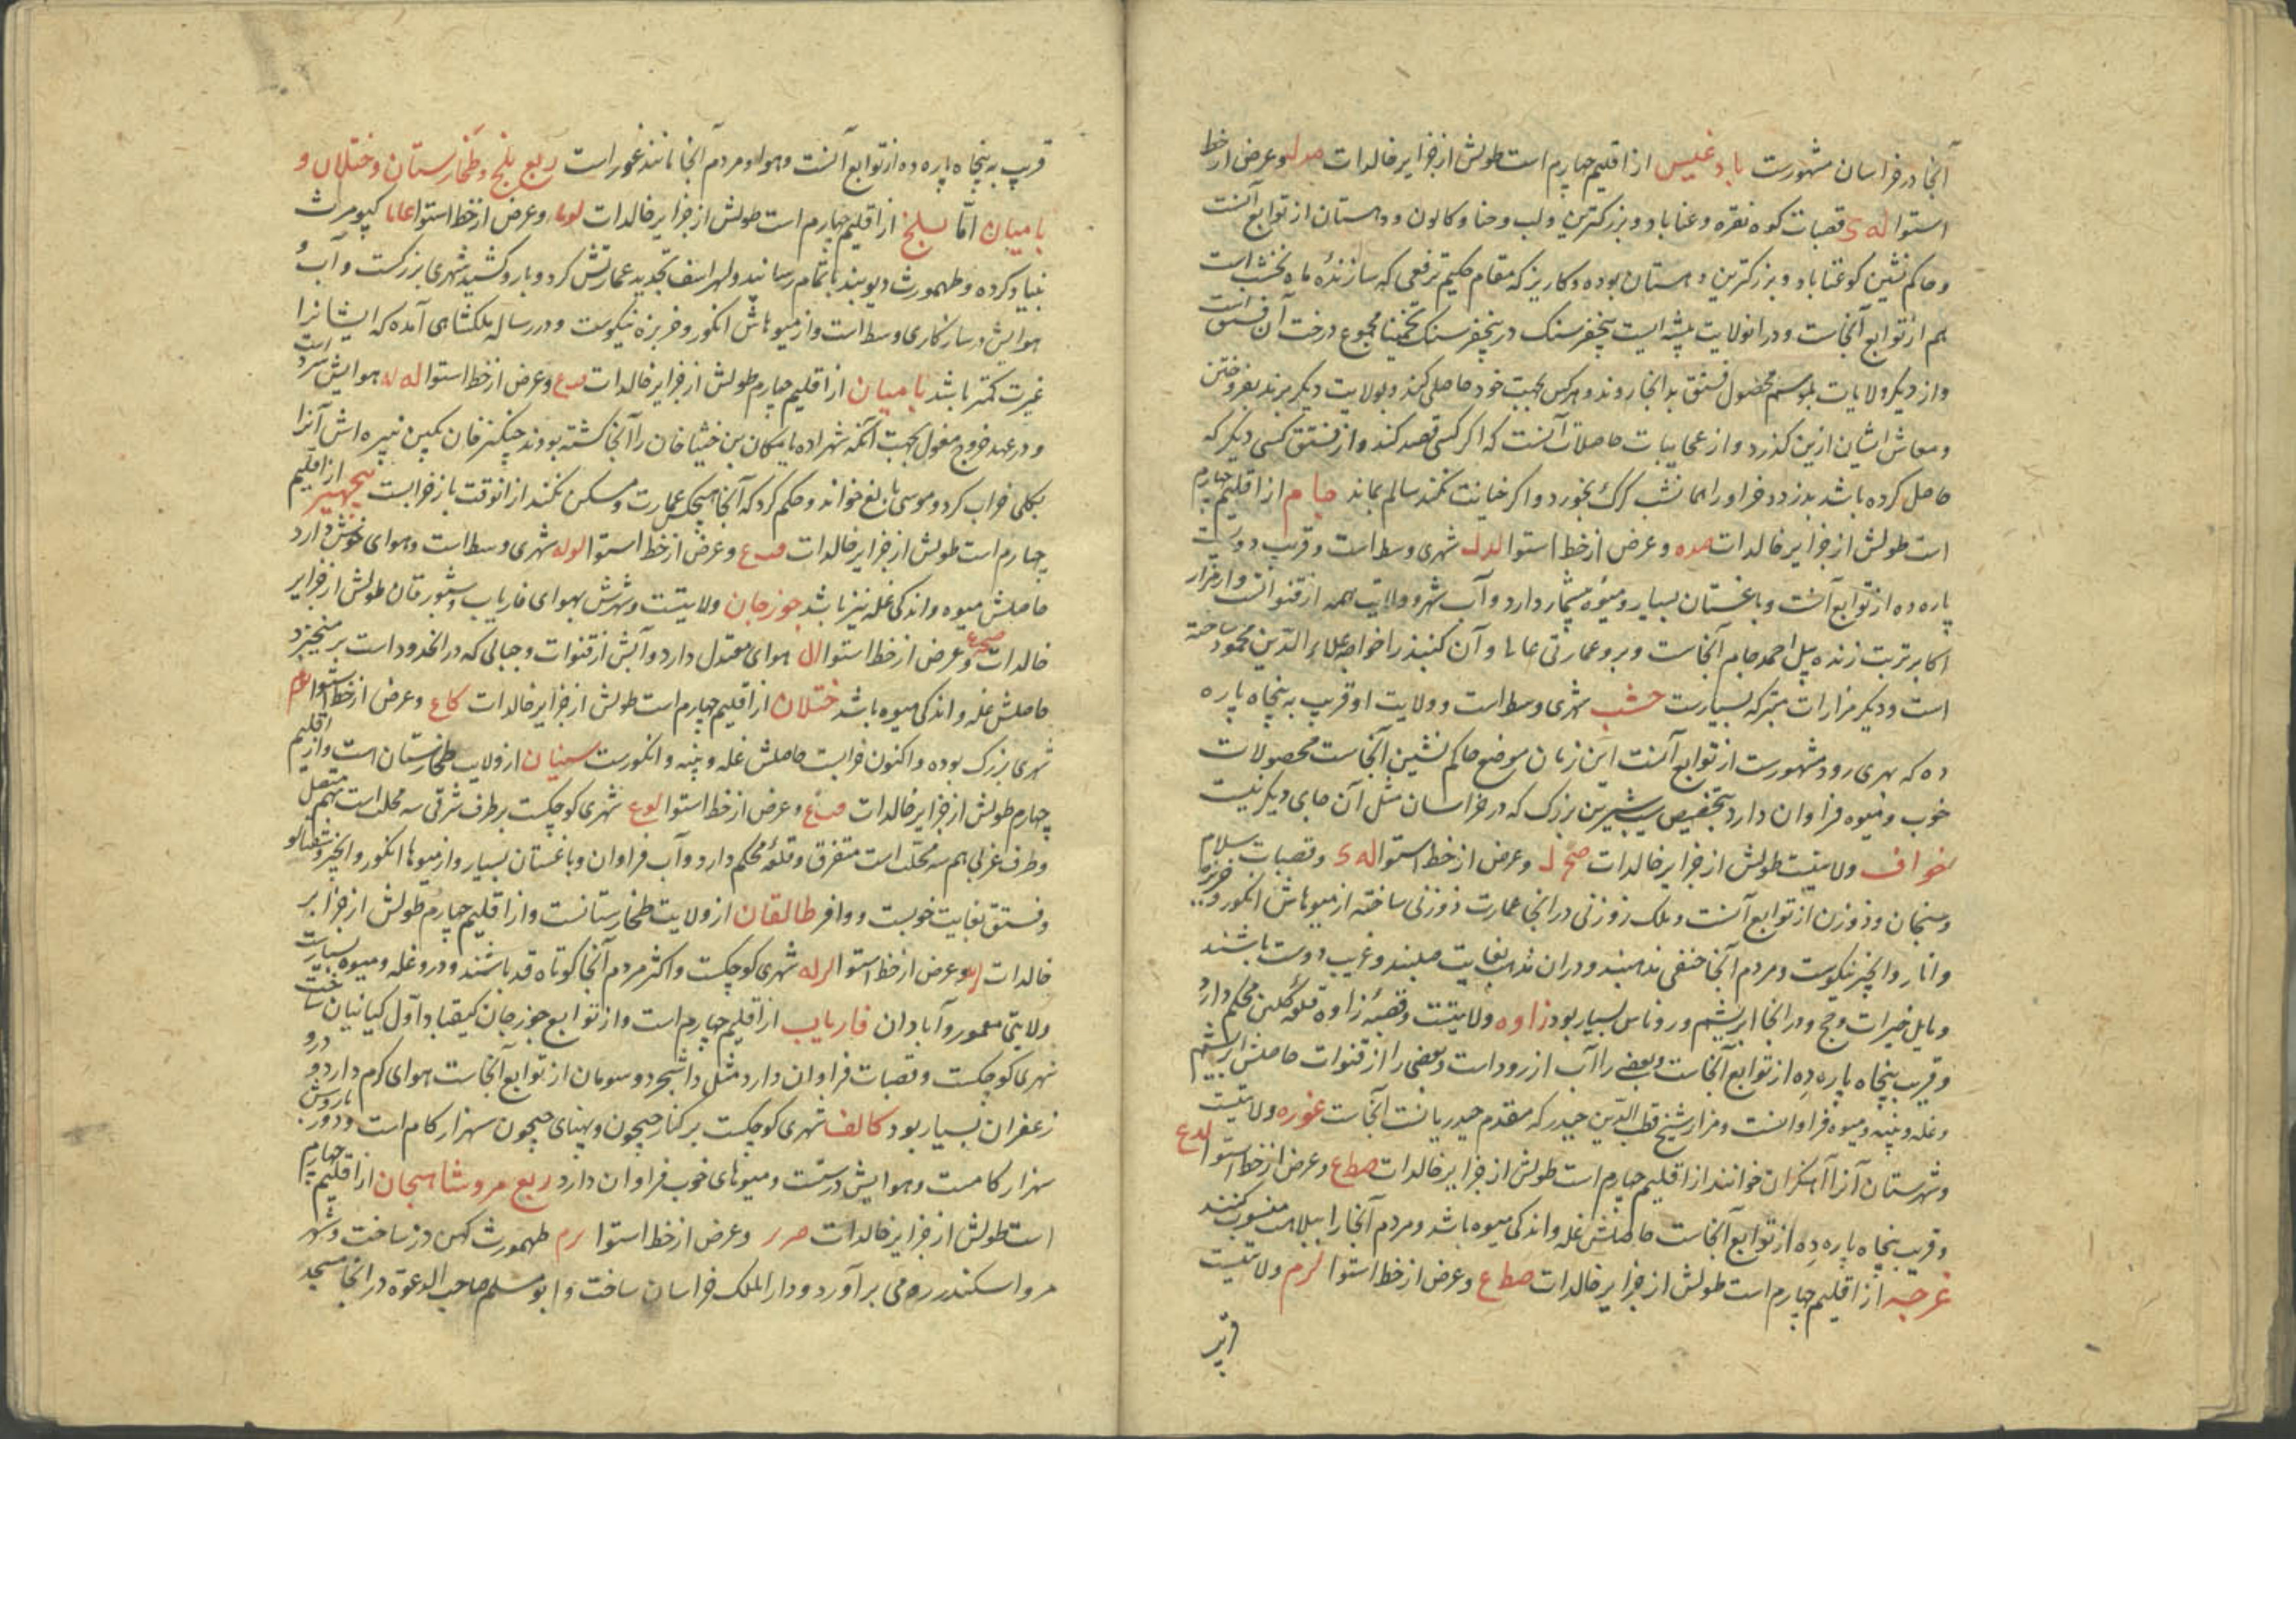 آنجا در خراسان مشهورست بادغیس از اقلیم چهارم است طولش از جزایر خالدات صدله وعرض از خط
استوا له ی قصبات کوه نقره وغناباد و بزرکترین ولب وحنا وکالون ودهستان از توابع آنست
وحاکم نشین کوغناباد و بزرکترین دهستان بوده وکاریز که مقام حکیم برقعی که سازنده ماه نخشب است
هم از توابع آنجاست و در انولایت بیشه ایست پنجفرسنک در پنجفرسنک تخمینا مجموع درخت آن فستق است
واز دیکر ولایات بموسم محصول فستق بدانجا روند وهرکس بجهت خود حاصل کند وبولایت دیکر برند بفروختن
ومعاش ایشان ازین کذرد واز عجایبات حاصلات آنست که اکر کسی قصد کند واز فستق کسی دیکر که
حاصل کرده باشد بدزدد خر او را همانشب کرک بخورد واکر خیانت نکند سالم بماند جام از اقلیم چهارم
است طولش از جزایر خالدات صده وعرض از خط استوا لدل شهری وسط است وقریب دویست
پاره ده از توابع آنست وباغستان بسیار ومیوه بیشمار دارد وآب شهر وولایت همه از قنواتست واز مزار
اکابر تربت زنده پیل احمد جام آنجاست وبرو عمارتی عالیا وآن کنبذ را خواجه علاء الدین محمود ساخته
است ودیکر مزارات متبرکه بسیارست خشب شهری وسط است وولایت او قریب به پنجاه پاره
ده که بهری رود مشهورست از توابع آنست این زمان موضع حاکم نشین آنجاست محصولات
خوب ومیوه فراوان دارد بتخصیص سیب شیرین بزرک که در خراسان مثل آن جای دیکر نیست
خواف ولایتیست طولش از جزایر خالدات صح ل وعرض از خط استوا له ی وقصبات سلام
وسنجان وزوزن از توابع آنست وملک زوزنی در انجا عمارت زوزنی ساخته از میوهاش انکور وخربزه
وانار وانجیر نیکوست ومردم آنجا حنفی مذهبند ودران مذهب بغایت صلبند وغریب دوست باشند
ومایل خیرات وحج ودر انجا ابریشم وروناس بسیار بود زاوه ولایتیست وقصبه زاوه قلعه کلین محکم دارد
وقریب پنجاه پاره ده از توابع آنجاست وبعضی را آب از روداست وبعضی را از قنوات حاصلش ابریشم
وغله وپنبه ومیوه فراوانست ومزار شیخ قطب الدین حیدر که مقدم حیدریانست آنجاست غوره ولایتیست
وشهرستان آنرا آهنکران خوانند از اقلیم چهارم است طولش از جزایر خالدات صط ع وعرض از خط استوا لدع
وقریب پنجاه پاره ده از توابع آنجاست حاصلش غله واندکی میوه باشد ومردم آنجا را ببلاهت منسوب کنند
غرجه از اقلیم چهارم است طولش از جزایر خالدات صط ع وعرض از خط استوا لرم ولایتیست
قریب به پنجاه پاره ده از توابع آنست وهوا ومردم آنجا مانند غور است ربع بلخ وطخارستان وختلان و
بامیان اما بلخ از اقلیم چهارم است طولش از جزایر خالدات وعرض از خط استوا کیومرث
بنیاد کرده وطهمورث دیوبند باتمام رسانید ولهراسف تجدید عمارتش کرد وبارو کشید شهری بزرکست وآب و
هوایش در سازکاری وسط است واز میوهاش انکور وخربزه نیکوست ودر رساله ملکشاهی آمده که ایشانرا
غیرت کمتر باشد بامیان از اقلیم چهارم طولش از جزایر خالدات وعرض از خط استوا له له هوایش سرد است
ودر عهد خروج مغول بجهت آنکه شهزاده مایکان بن جغتیا خان را آنجا کشته بودند چنکیز خان بکین نبیره اش آنرا
بکلی خراب کرد وموسی بالیغ خواند وحکم کرد که آنجا هیچکس عمارت ومسکن نکند از انوقت باز خرابست پنجهیر از اقلیم
چهارم است طولش از جزایر خالدات وعرض از خط استوا لوله شهری وسط است وهوای خوش دارد
حاصلش میوه واندکی غله نیز باشد جوزجان ولایتیست وشهرش یهودای فاریاب وشبورقان طولش از جزایر
خالدات وعرض از خط استوا لل هوای معتدل دارد وآبش از قنوات وجبالی که در انحدود است برمیخیزد
حاصلش غله واندکی میوه باشد ختلان از اقلیم چهارم است طولش از جزایر خالدات کاع وعرض از خط استوا
شهری بزرک بوده واکنون خرابست حاصلش غله وپنبه وانکورست سمنیان از ولایت طخارستان است واز اقلیم
چهارم طولش از جزایر خالدات وعرض از خط استوا لوع شهری کوچکست بر طرف شرقی سه محلت است بهم متصل
وطرف غربی هم سه محلت است متفرق وقلعه محکم دارد وآب فراوان وباغستان بسیار واز میوها انکور وانجیر وشفتالو
وفستق بغایت خوبست ووافر طالقان از ولایت طخارستانست واز اقلیم چهارم طولش از جزایر
خالدات وعرض از خط استوا لرله شهری کوچکست واکثر مردم آنجا کوتاه قد باشند ودرو غله ومیوه بسیارست
ولایتی معمور وآبادان فاریاب از اقلیم چهارم است واز توابع جوزجان کیقباد اول کیانیان ساخت
شهری کوچکست وقصبات فراوان دارد مثل داشجرد وسومان از توابع آنجاست هوای کرم دارد ودرو
زعفران بسیار بود کالف شهری کوچکست بر کنار جیحون وپهنای جیحون سهزار کام است ودور باروش
سهزار کامست وهوایش درستست ومیوهای خوب فراوان دارد ربع مروشاهجان از اقلیم چهارم
است طولش از جزایر خالدات صرر وعرض از خط استوا لرم طهمورث کهن دز ساخت وشهر
مرو اسکندر رومی برآورد ودار الملک خراسان ساخت وابو مسلم صاحب الدعوة در انجا مسجد